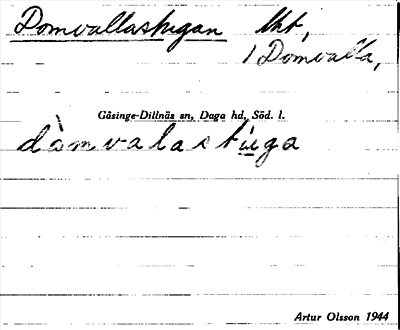 Domvallastugan lht,
i Domvalla,
Gåsinge-Dillnäs sn, Daga hd, Söd. l.
dòmvalastúga
Artur Olsson 1944